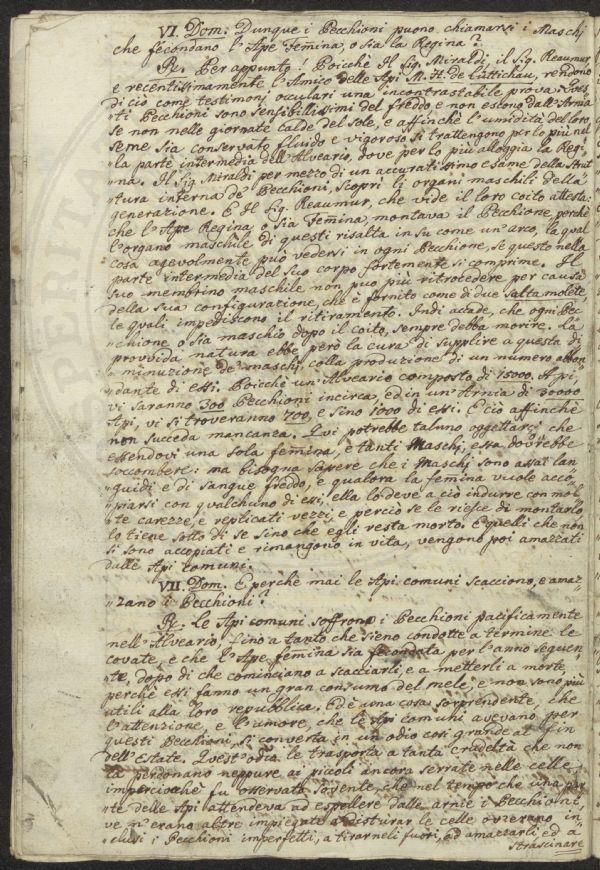 VI. Dom. Dunque i Pecchioni puono chiamarsi i Maschj
che fecondano l'Ape Femina, o sia la Regina?
R. Per appunto! Poicchè Il Sig. Miraldi, il Sig. Reaumur,
e recentissimamente l'Amico delle Api M. H. de Lüttichau, rendono
di ciò come testimonj occulari una incontrastabile prova: Ques„
„ti Pecchioni sono sensibilissimi del freddo e non escono dall'Arnia
se non nelle giornate calde del sole, e affinchè l'umidità del loro
seme sia conservato fluido e vigoroso, si trattengono per lo più nel„
„la parte intermedia dell'Alveario, dove per lo più alloggia la Regi„
„na. Il Sig Miraldi per mezzo di un accuratissimo esame della Strut„
„tura interna de' Pecchioni, scoprì li organi maschili della
generazione. E Il Sig. Reaumur, che vide il loro coito attesta:
che l'Ape Regina, o sia Femina, montava il Pecchione, perchè
l'organo maschile di questi risalta in su come un'arco, la qual
cosa agevolmente può vedersi in ogni Pecchione, se questo nella
parte intermedia del suo corpo fortemente si comprime. Il
suo membrino maschile non può più ritrocedere per causa
della sua configurazione, che è fornito come di due salta molete,
le quali impediscono il ritiramento. Indi accade, che ogni Pec„
„chione o sia maschio dopo il coito, sempre debba morire. La
provvida natura ebbe però la cura di supplire a questa di„
„minuzione de' maschj colla produzione di un numero abbon„
„dante di essi. Poicchè un'Alveario composto di 15000. Api,
vi saranno 300 Pecchioni incirca, ed in un'Arnia di 30000
Api, vi si troveranno 700, e sino 1000 di essi. E ciò affinchè
non succeda mancanza. Qui potrebbe taluno oggettarci che
essendovi una sola femina, e tanti Maschj, essa dovrebbe
soccombere: ma bisogna sapere che i Maschj sono assai lan„
„guidi e di sangue freddo, e qualora la femina vuole acco„
„piarsi con qualchuno di essi, ella lo deve a ciò indurre con mol„
„te carezze, e replicati vezzi, e perciò se le riesce di montarlo
lo tiene sotto di se sino che egli resta morto. E quelli che non
si sono accopiati e rimangono in vita, vengono poi amazzati
dalle Api comuni.
VII. Dom. E perchè mai le Api comuni scacciono, e amaz„
„zano i Pecchioni?
R. Le Api comuni soffrono i Pecchioni pacificamente
nell'Alveario, sino a tanto che sieno condotte a termine le
covate, e che l'Ape femina sia fecondata per l'anno sequen„
„te, dopo di che cominciano a scacciarli, e a metterli a morte
perchè essi fanno un gran consumo del mele, e non sono più
utili alla loro repubblica. Ed è una cosa sorprendente, che
l'attenzione, e l'amore, che le Api comuni avevano per
questi Pecchioni, si converta in un odio così grande al fin
dell'Estate. Quest'odio le trasporta a tanta crudeltà che non
la perdonano neppure ai piccoli ancora serrate nelle celle,
imperciochè fu osservato sovente, che nel tempo che una par„
„te delle Api attendeva ad espellere dalle arnie i Pecchioni,
ve n'erano altre impiegate a disturar le celle ov'erano in„
„clusi i Pecchioni imperfetti, a tirarneli fuori, ed amazzarli ed a
strascinare